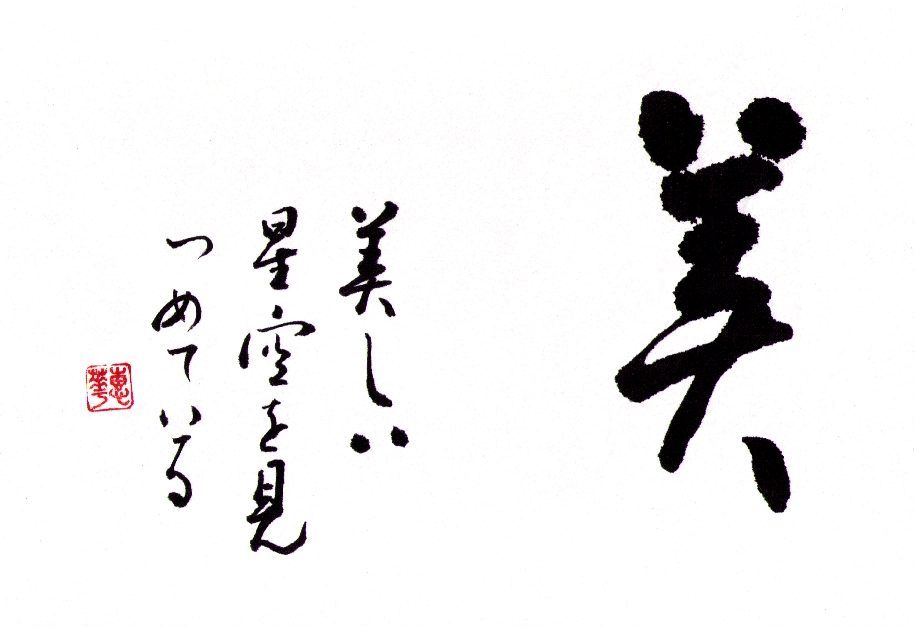 美
美しい
星空を見
つめている
恵華